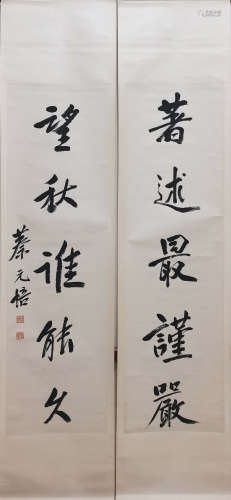 著述最謹嚴
望秋誰能久
蔡元培